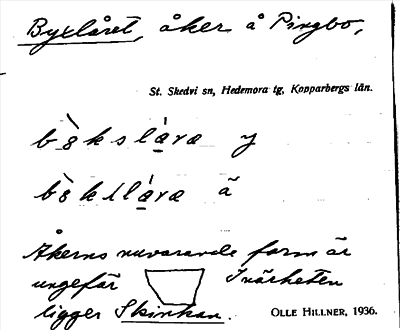 Byxlåret, åker å Pingbo,
St. Skedvi sn, Hedemora tg, Kopparbergs län.
y
ä
Åkerns nuvarande form är
ungefär I närheten
ligger Skinkan.
OLLE HILLNER, 1936.